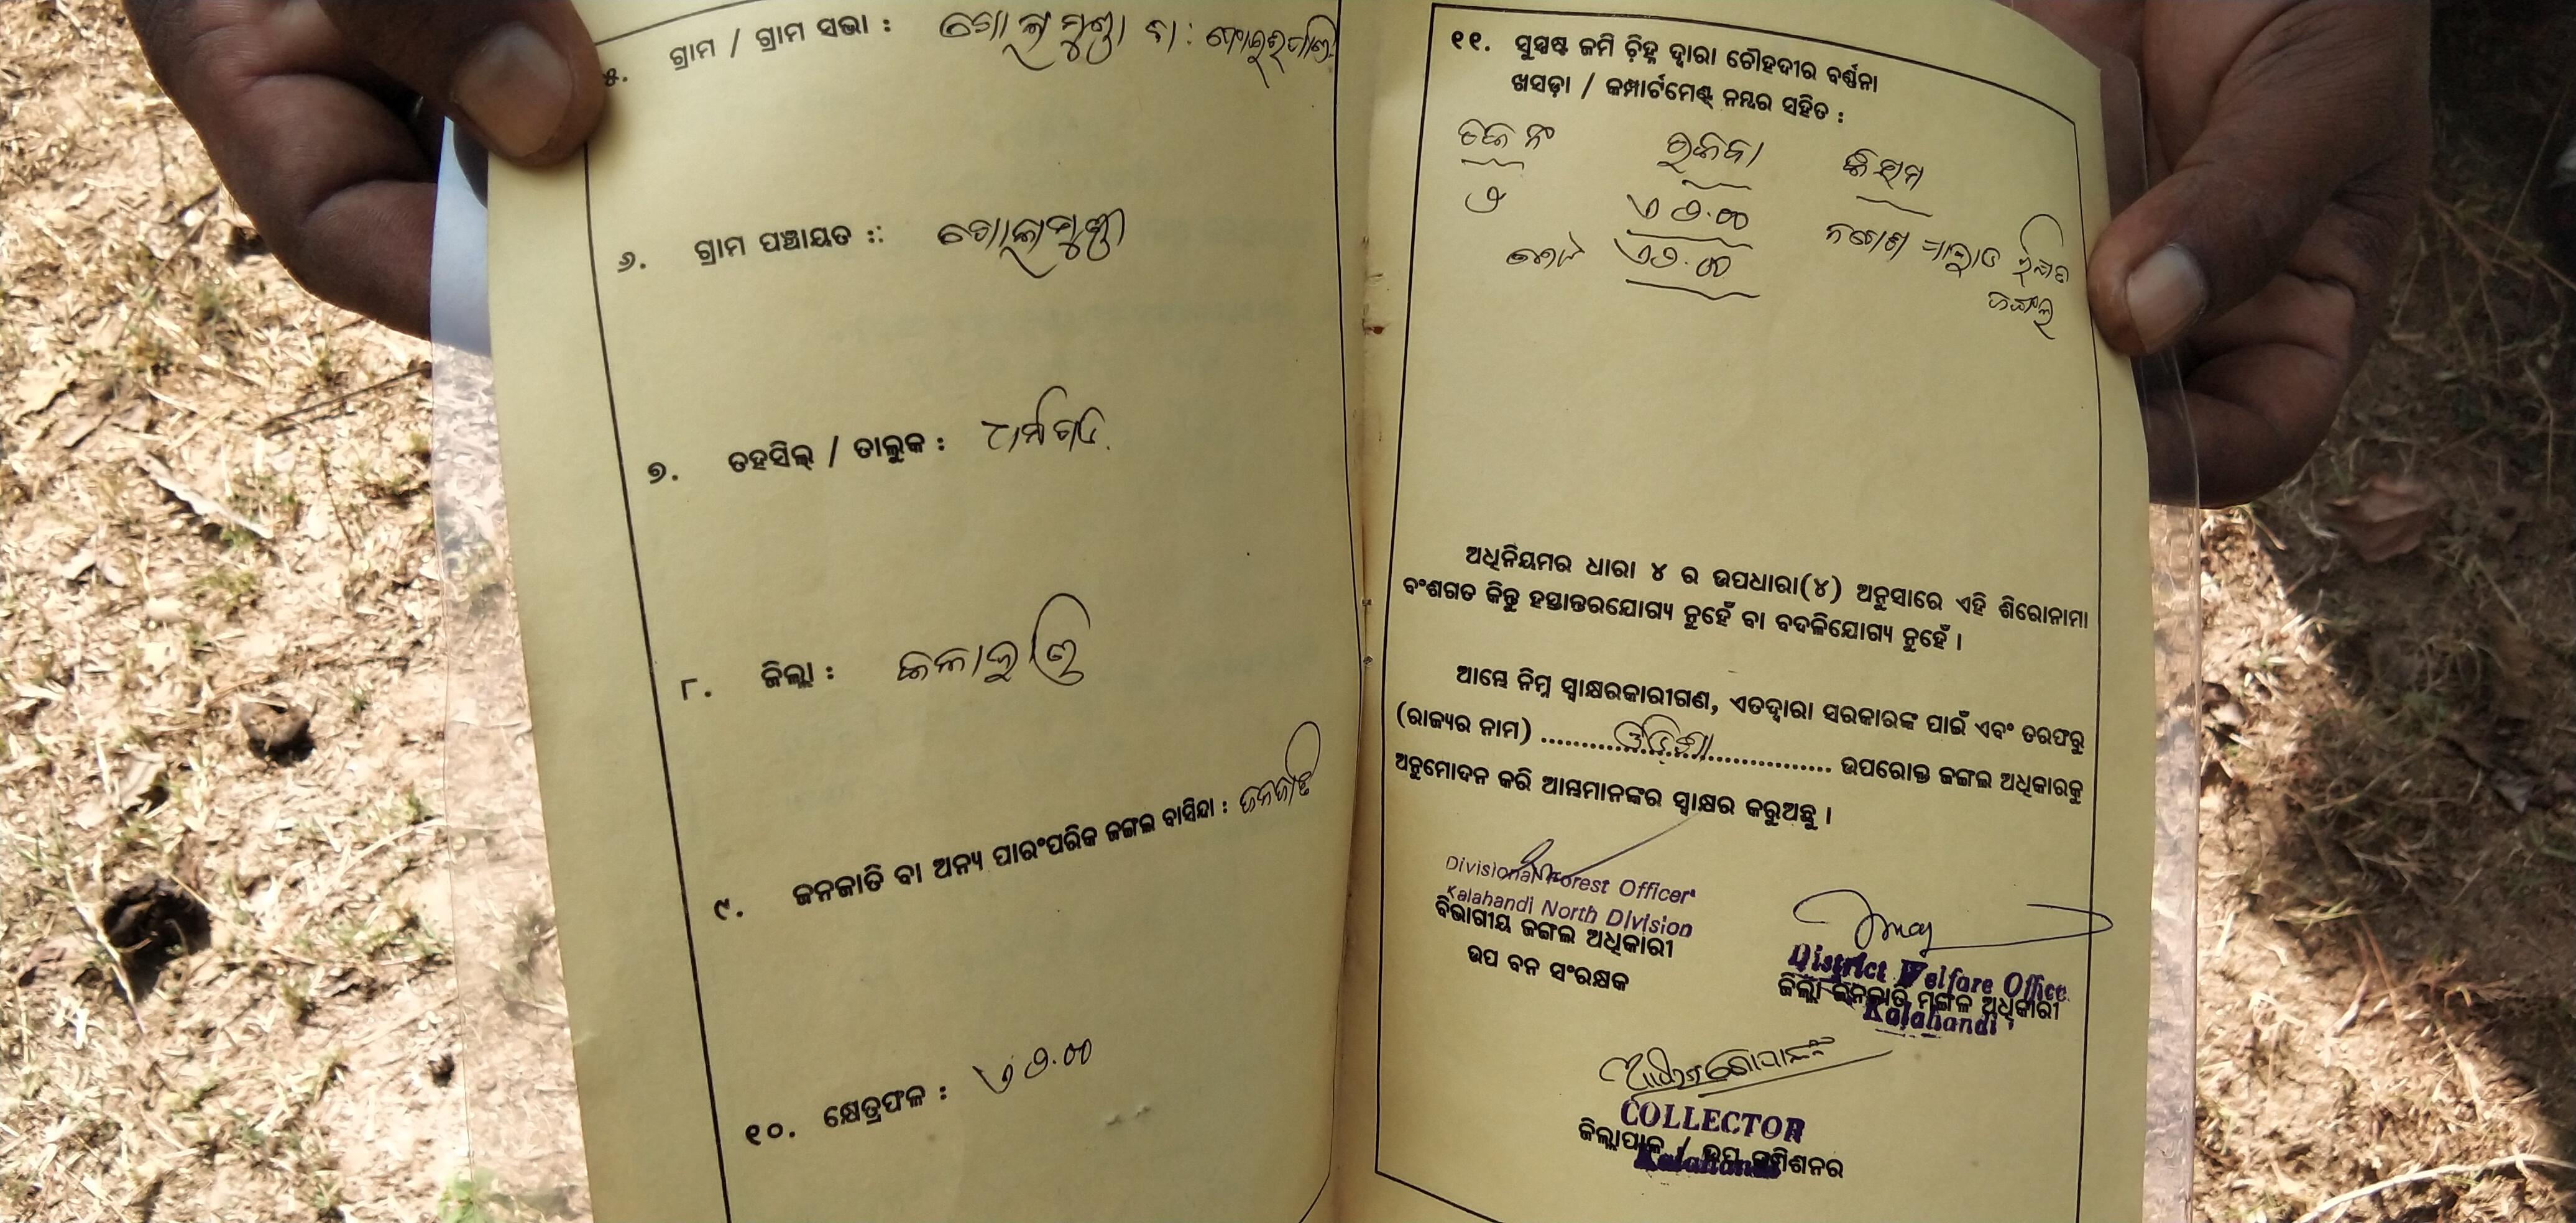 ୫. ଗ୍ରାମ / ଗ୍ରାମ ସଭା : ଗୋଲମୁଣ୍ଡା ବା :
୬. ଗ୍ରାମ ପଞ୍ଚାୟତ :: ଗୋଲମୁଣ୍ଡା
୭. ତହସିଲ୍ / ତାଲୁକ : ଧର୍ମଗଡ.
୮. ଜିଲ୍ଲା : କଳାହାଣ୍ଡି
୯. ଜନଜାତି ବା ଅନ୍ୟ ପାରଂପରିକ ଜଙ୍ଗଲ ବାସିନ୍ଦା : ଜନଜାତି
୧୦. କ୍ଷେତ୍ରଫଳ :
୧୧. ସୁସ୍ପଷ୍ଟ ଜମି ଚ଼ିହ୍ନ ଦ୍ୱାରା ଚୌହଦୀର ବର୍ଣ୍ଣନା
ଖସଡ଼ା / କମ୍ପାର୍ଟମେଣ୍ଟ୍ ନମ୍ବର ସହିତ :
ଚକ ନଂ ରକବା କିସମ
ମୋଟ
ଜଙ୍ଗଲ
ଅଧିନିୟମର ଧାରା ୪ ର ଉପଧାରା(୪) ଅନୁସାରେ ଏହି ଶିରୋନାମା
ବଂଶଗତ କିନ୍ତୁ ହସ୍ତାନ୍ତରଯୋଗ୍ୟ ନୁହେଁ ବା ବଦଳିଯୋଗ୍ୟ ନୁହେଁ ।
ଆମ୍ଭେ ନିମ୍ନ ସ୍ୱାକ୍ଷରକାରୀଗଣ, ଏତଦ୍ୱାରା ସରକାରଙ୍କ ପାଇଁ ଏବଂ ତରଫରୁ
(ରାଜ୍ୟର ନାମ) ........ଓଡିଶା........ ଉପରୋକ୍ତ ଜଙ୍ଗଲ ଅଧିକାରକୁ
ଅନୁମୋଦନ କରି ଆମ୍ଭମାନଙ୍କର ସ୍ୱାକ୍ଷର କରୁଅଛୁ ।
Divisional Forest Officer
Kalahandi North Division
ବିଭାଗୀୟ ଜଙ୍ଗଲ ଅଧିକାରୀ
ଉପ ବନ ସଂରକ୍ଷକ
District Welfare Office
ଜିଲ୍ଲା ଜନଜାତି ମଙ୍ଗଳ ଅଧିକାରୀ
Kalahandi
COLLECTOR
ଜିଲ୍ଲାପାଳ / ଉପ କମିଶନର
Kalahandi